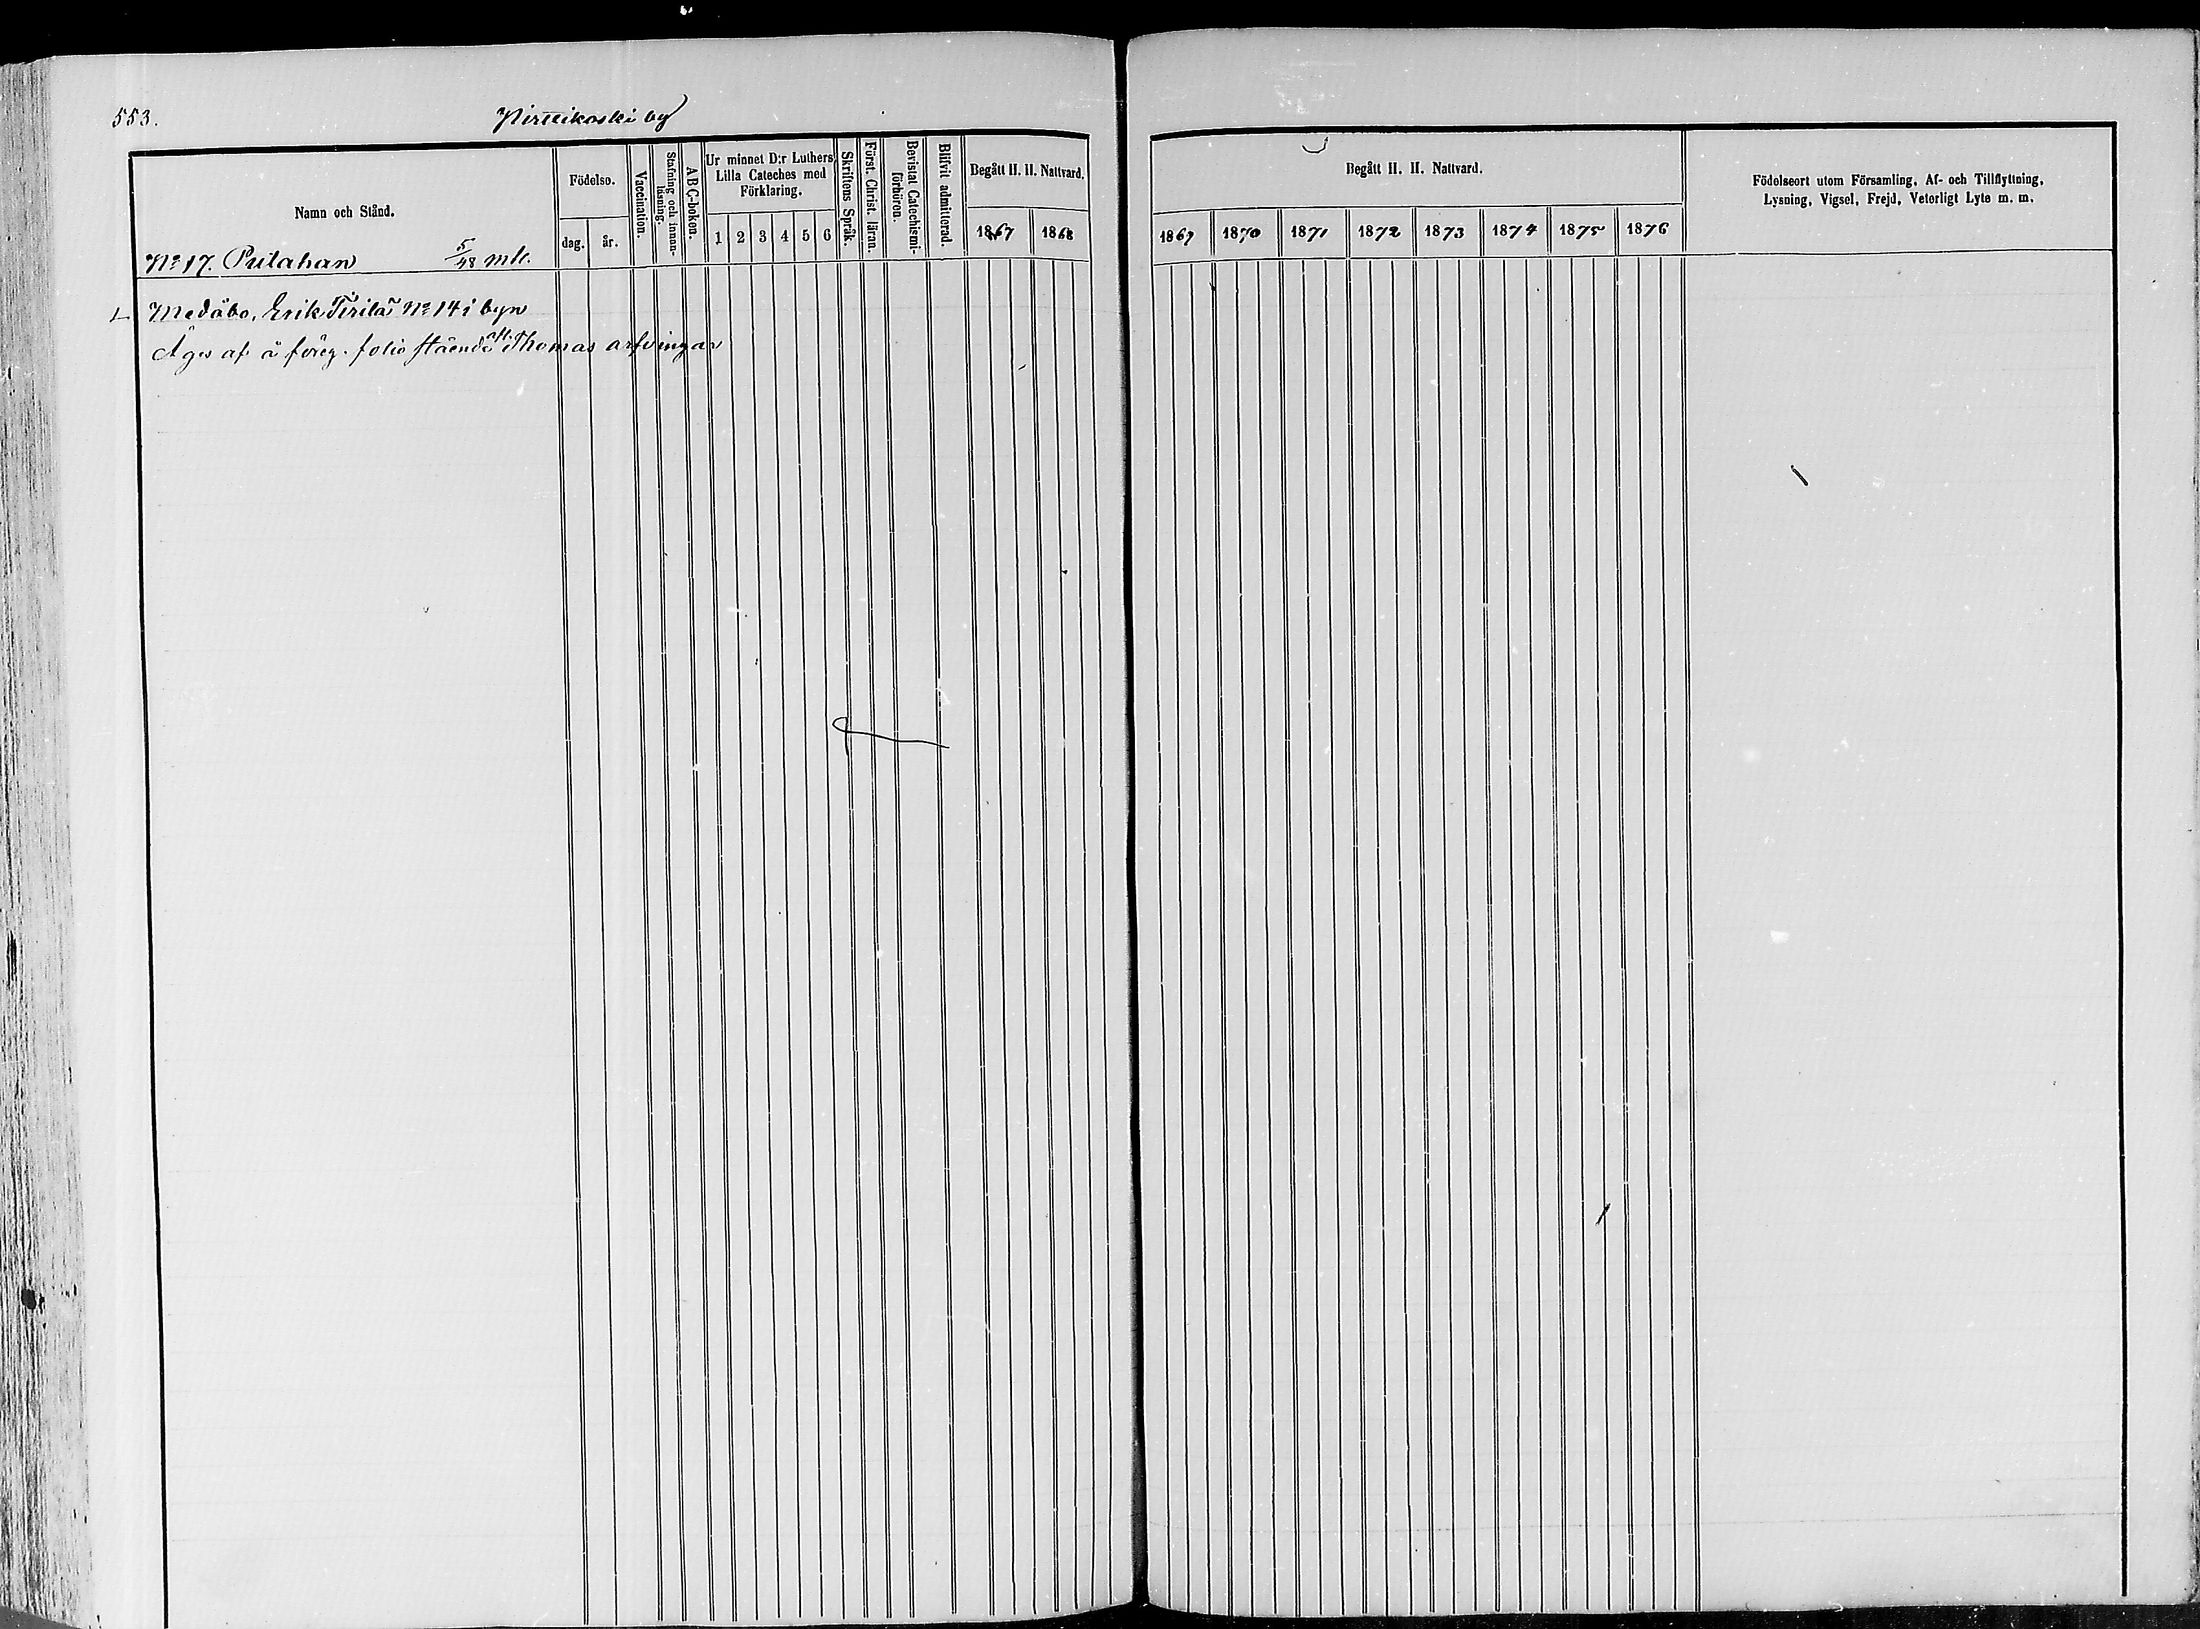 553.
Pirttikoski by
Namn och Stånd.
Födelse.
dag.
år.
Vaccination.
Stafning och innan-
läsning.
ABC-boken.
Ur minnet D:r Luthers
Lilla Cateches med
Förklaring.
1 2 3 4 5 6
Skriftens Språk.
Först. Christ. läran.
Bevistat Catechismi-
förhören.
Blifvit admitterad.
Begått H. H. Nattvard.
1867 1868
Begått H. H. Nattvard.
1869 1870 1871 1872 1873 1874 1875 1876
Födelseort utom Församling, Af- och Tillflyttning,
Lysning, Vigsel, Frejd, Veterligt Lyte m. m.
No 17. Putahan 5/48 mtl.
Medåbo, Erik Tirilä No 14 i byn
Äges af å föreg. folio stående Thomas arfvingar